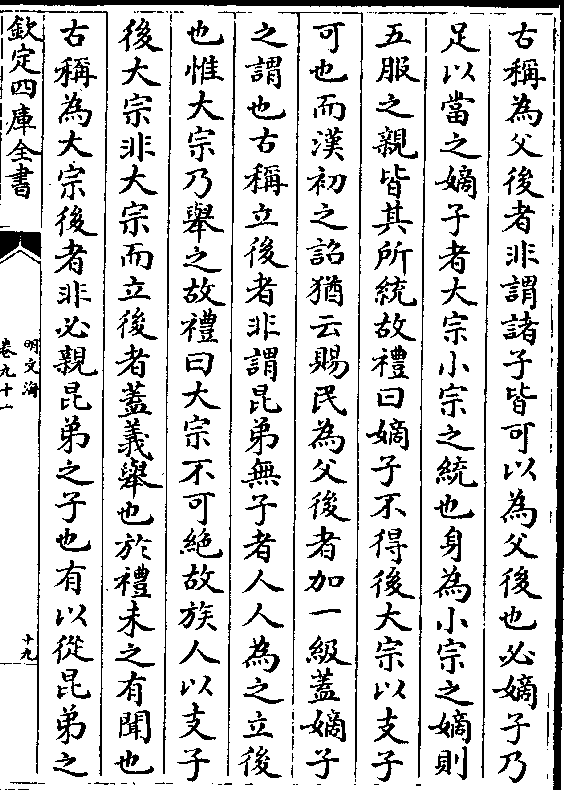 古稱為父後者非謂諸子皆可以為父後也必嫡子乃
足以當之嫡子者大宗小宗之統也身為小宗之嫡則
五服之親皆其所統故禮曰嫡子不得後大宗以支子
可也而漢初之詔猶云賜民為父後者加一級蓋嫡子
之謂也古稱立後者非謂昆弟無子者人人為之立後
也惟大宗乃舉之故禮曰大宗不可絶故族人以支子
後大宗非大宗而立後者蓋義舉也於禮未之有聞也
古稱為大宗後者非必親昆弟之子也有以從昆弟之
欽定四庫全書
明文海
卷九十一
十九